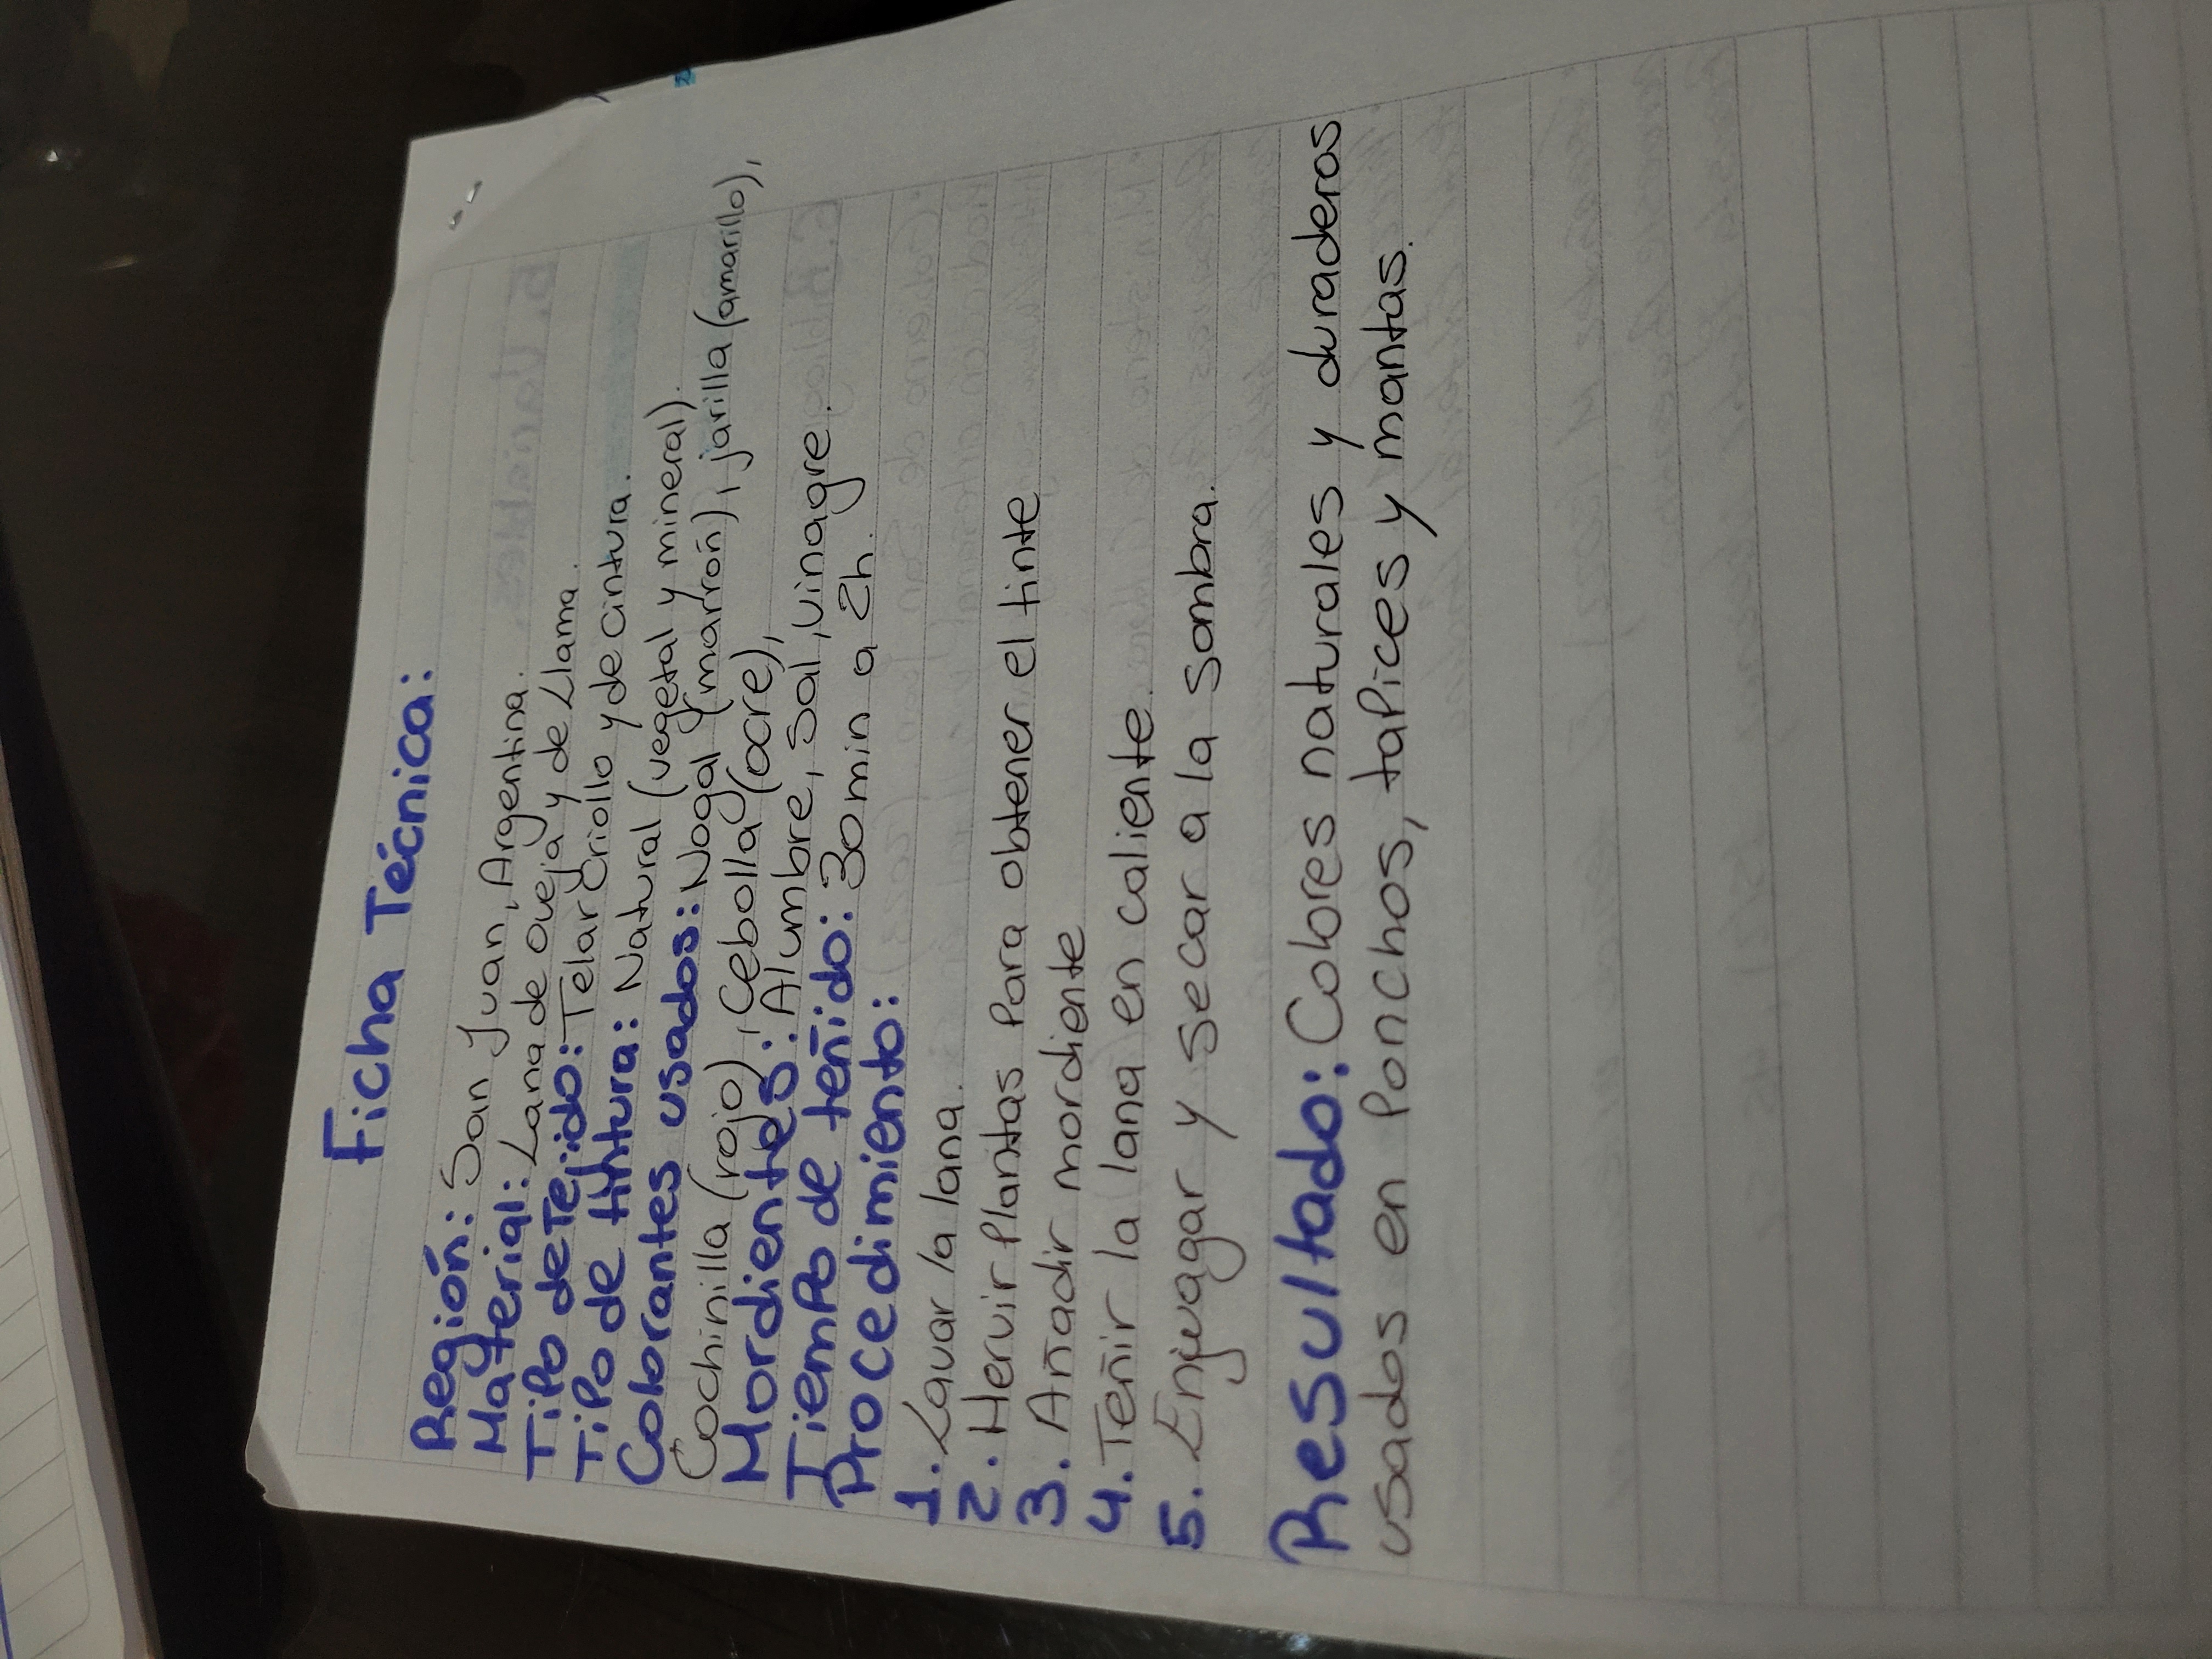 Ficha Técnica:
Región: San Juan, Argentina.
Material: Lana de oveja y de Llama.
Tipo de Tejido: Telar Criollo y de cintura.
Tipo de tintura: Natural (vegetal y mineral).
Colorantes usados: Nogal (marrón), jarilla (amarillo),
Cochinilla (rojo), Cebolla (ocre),
Mordientes: Alumbre, sal, vinagre.
Tiempo de teñido: 30 min a 2h.
Procedimiento:
1. Lavar la lana.
2. Hervir Plantas Para obtener el tinte
3. Añadir mordiente
4. Teñir la lana en caliente.
5. Enjuagar y secar a la sombra.
Resultado: Colores naturales y duraderos
usados en Ponchos, tapices y mantas.